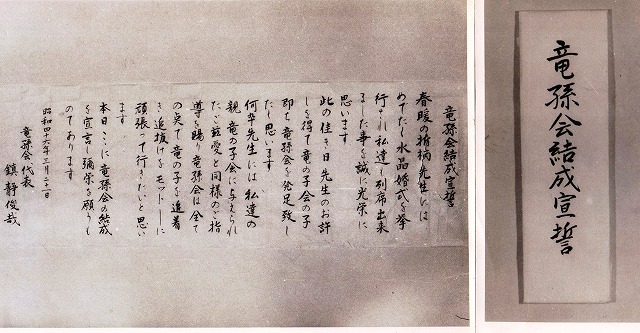 竜孫会結成宣誓
春暖の指柄先生には
めでたし水晶婚式を挙
行され私達も列席出来
ました事を誠に光栄に
思います
此の佳き日先生のお許
しを得て竜の子会の子
即ち竜孫会を発足致し
たし思います
何卒先生には私達の
親竜の子会に与えられ
たご慈愛と同様のご指
導を賜り竜孫会は全て
の点て竜の子を追着
き追抜けをモットーに
頑張って行きたいと思い
ます
本日ここに竜孫会の結成
を宣言し彌栄を願うも
のであります
昭和四十六年三月二十一日
竜孫会代表
鎮静俊哉
竜孫会結成宣誓